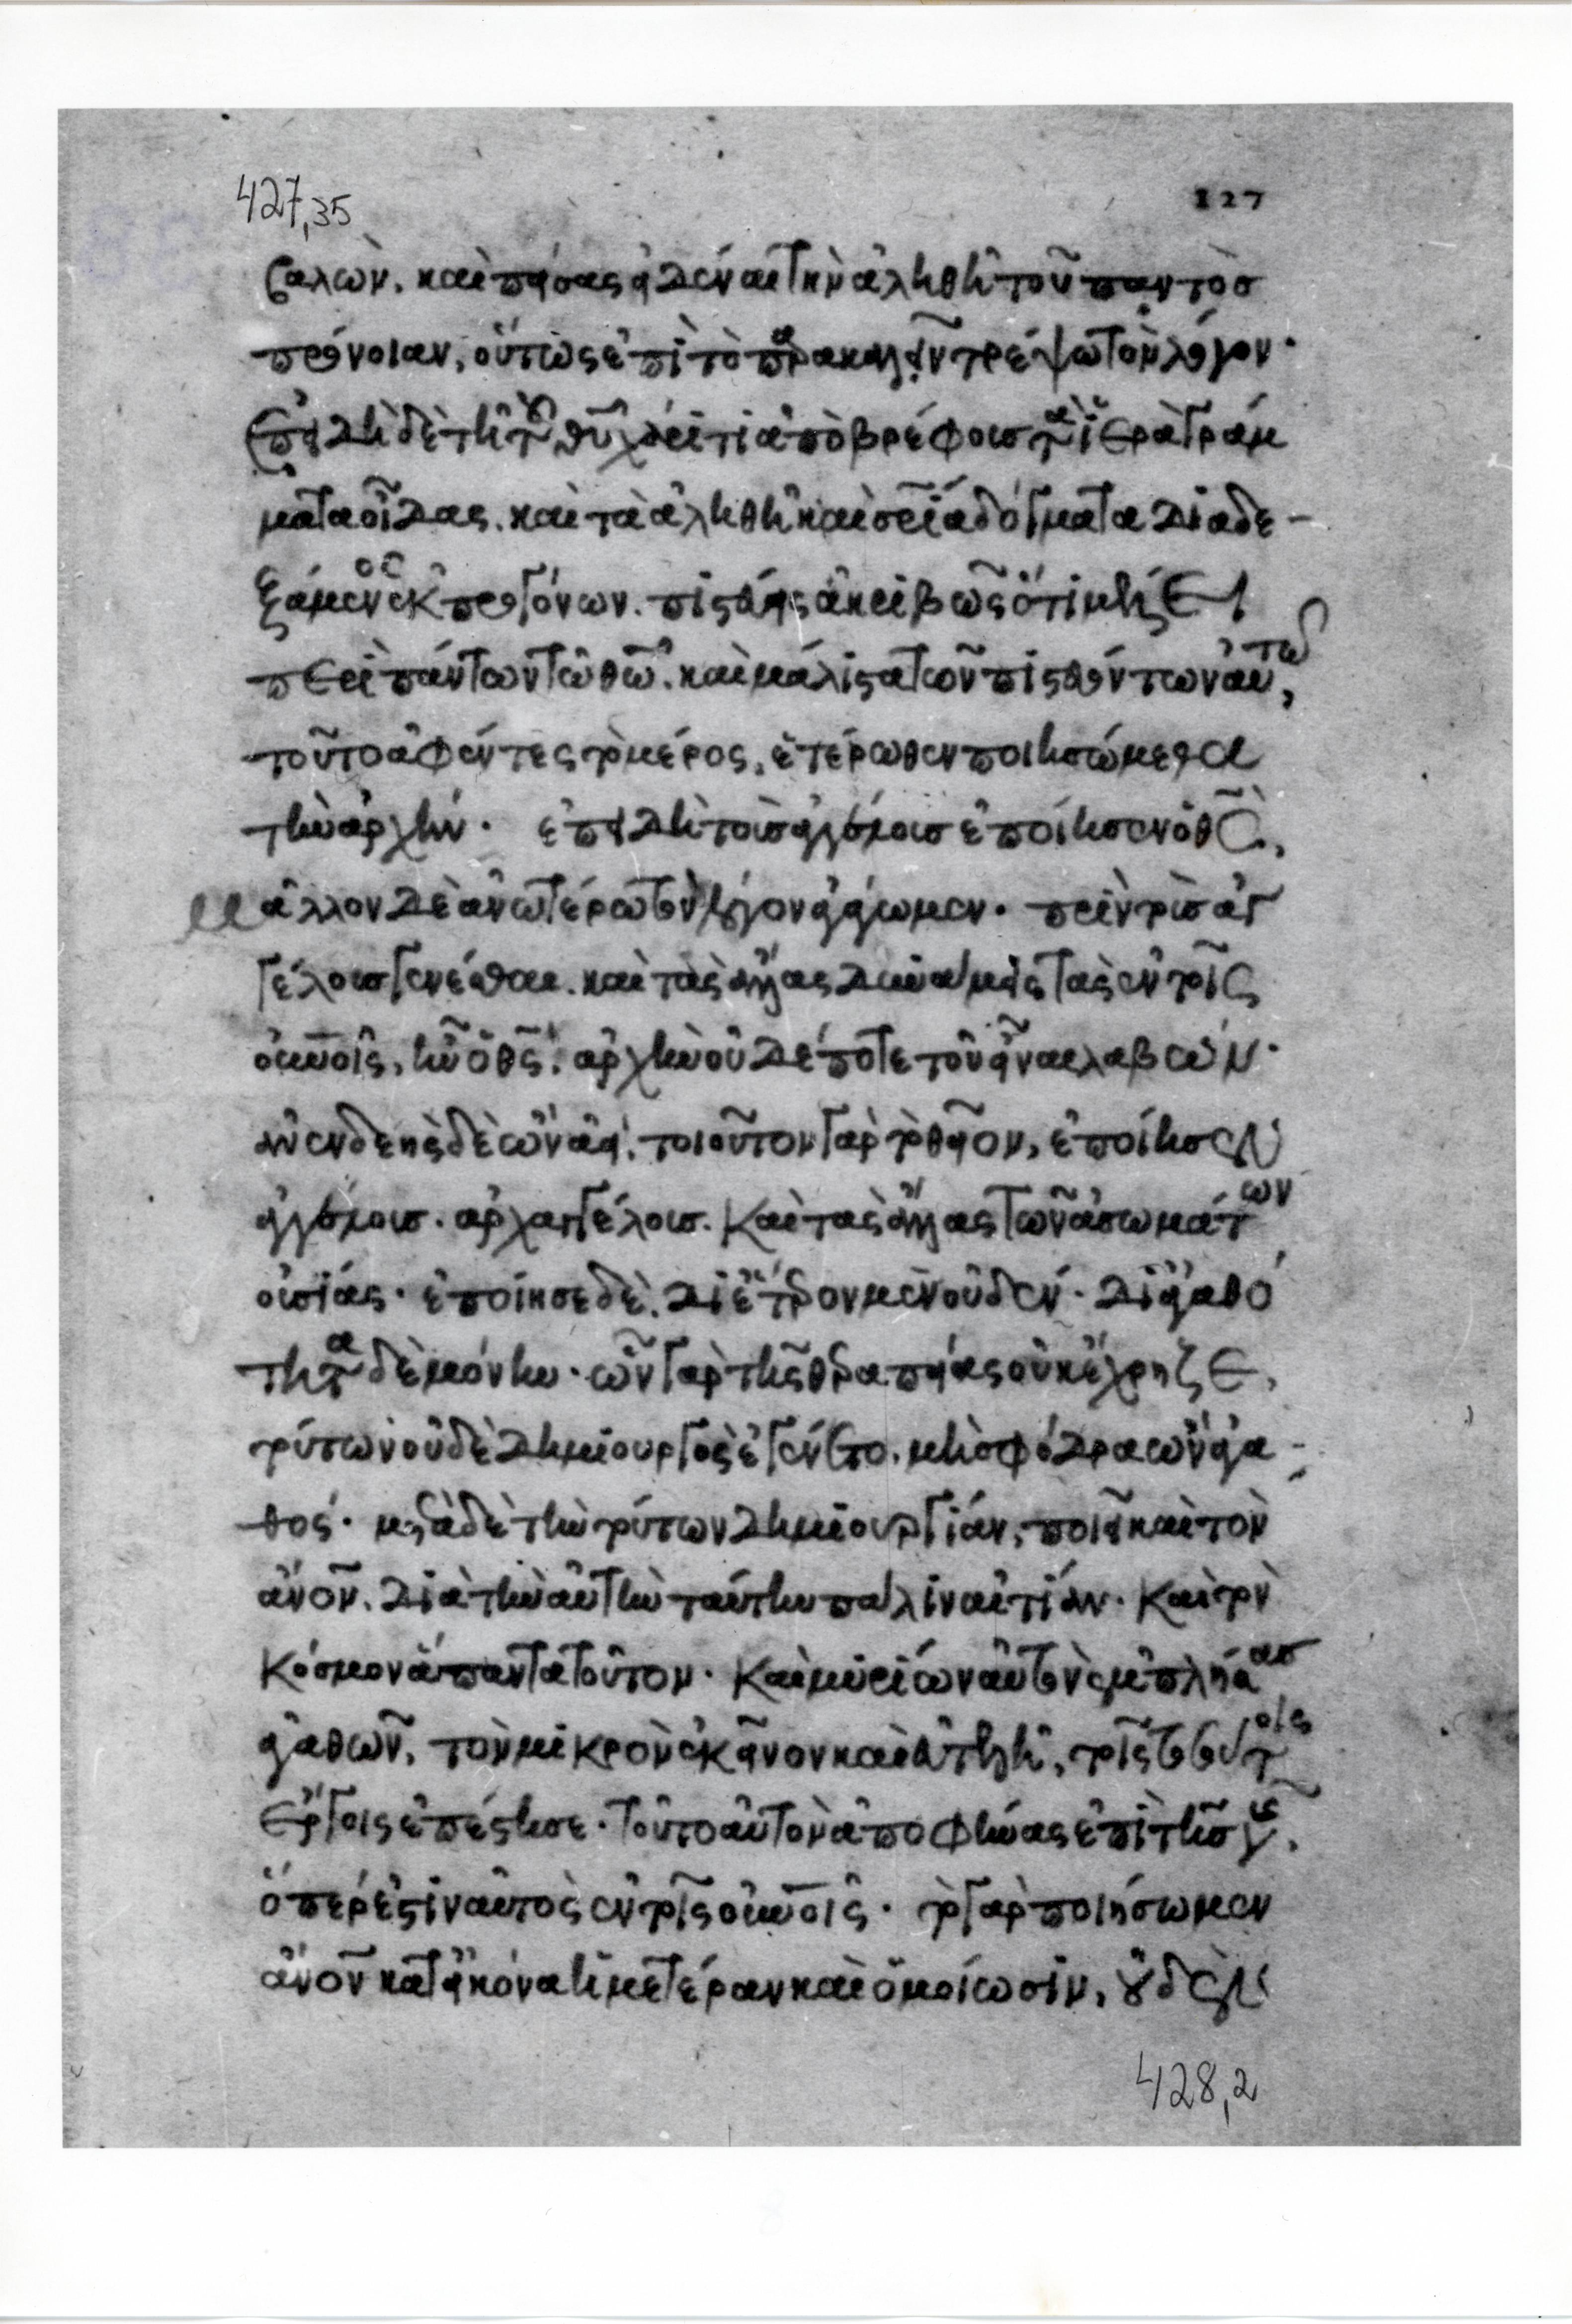 427,35
127
βαλὼν. καὶ πείσας εἰδέναι τὴν ἀληθῆ τοῦ παντὸσ
πρόνοιαν, οὕτως ἐπὶ τὸ παρακαλεῖν τρέψω τὸν λόγον·
Ἐπειδὴ δὲ τῆ τοῦ θυ χάριτι ἀπὸ βρέφουσ τὰ ἱερὰ γράμ
ματα οἶδας. καὶ τὰ ἀληθῆ καὶ σωτήρια δόγματα διαδε-
ξάμενος ἐκ προγόνων. πιστεύεις ἀκριβῶς ὅτι μέλει
περὶ πάντων τῶ θῶ. καὶ μάλιστα τῶν πιστευόντων αὐτῶ,
τοῦτο ἀφέντες τὸ μέρος, ἑτέρωθεν ποιησώμεθα
τὴν ἀρχήν· ἐπειδὴ τοὺσ ἀγγέλουσ ἐποίησεν ὁ θς,
μᾶλλον δὲ ἀνωτέρω τὸν λόγον ἀγάγωμεν· πρὶν τοὺσ ἀγ
γέλουσ γενέσθαι. καὶ τὰς ἄλλας δυνάμεις τὰς ἐν τοῖς
οὐνοῖς, ἦν ὁ θς. ἀρχὴν οὐδέποτε τοῦ εἶναι λαβών·
ἀνενδεὴς δὲ ὢν ἀεὶ. τοιοῦτον γὰρ τὸ θεῖον, ἐποίησεν
ἀγγέλουσ. ἀρχαγγέλουσ. καὶ τὰς ἄλλας τῶν ἀσωμάτων
οὐσίας· ἐποίησε δὲ. δι' ἕτερον μὲν οὐδέν· δι' ἀγαθό
τητα δὲ μόνην· ὧν γὰρ τῆς θεραπείας οὐκ ἔχρηζε,
τούτων οὐδὲ δημιουργὸς ἐγένετο. μὴ σφόδρα ὢν ἀγα-
θός· μετὰ δὲ τὴν τούτων δημιουργίαν, ποιεῖ καὶ τὸν
ἄνον. διὰ τὴν αὐτὴν ταύτην πάλιν αἰτίαν· καὶ τὸν
κόσμον ἅπαντα τοῦτον· καὶ μυρίων αὐτὸν ἐμπλήσας
ἀγαθῶν, τὸν μικρὸν ἐκεῖνον καὶ εὐτελῆ, τοῖς τοσούτοις
ἔργοις ἐπέστησε· τοῦτο αὐτὸν ἀποφήνας ἐπὶ τῆσ γῆς.
ὅπερ ἐστὶν αὐτὸς ἐν τοῖς οὐνοῖς· τὸ γὰρ ποιήσωμεν
ἄνον κατ' εἰκόνα ἡμετέραν καὶ ὁμοίωσιν, οὐδὲν
428,2